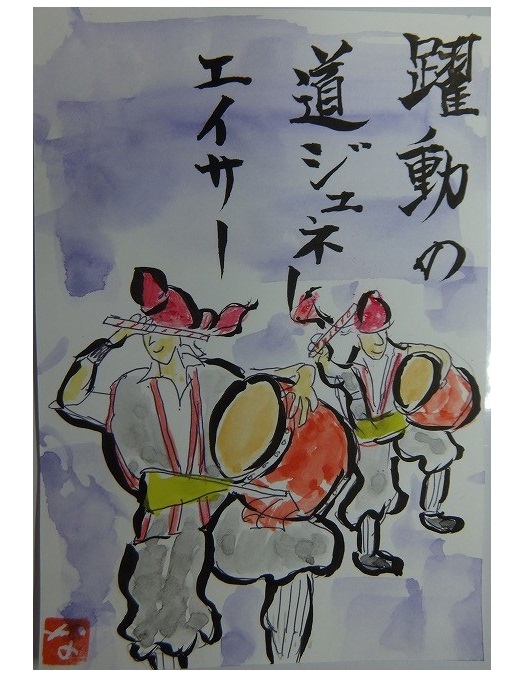 躍動の
道ジュネー
エイサー
な